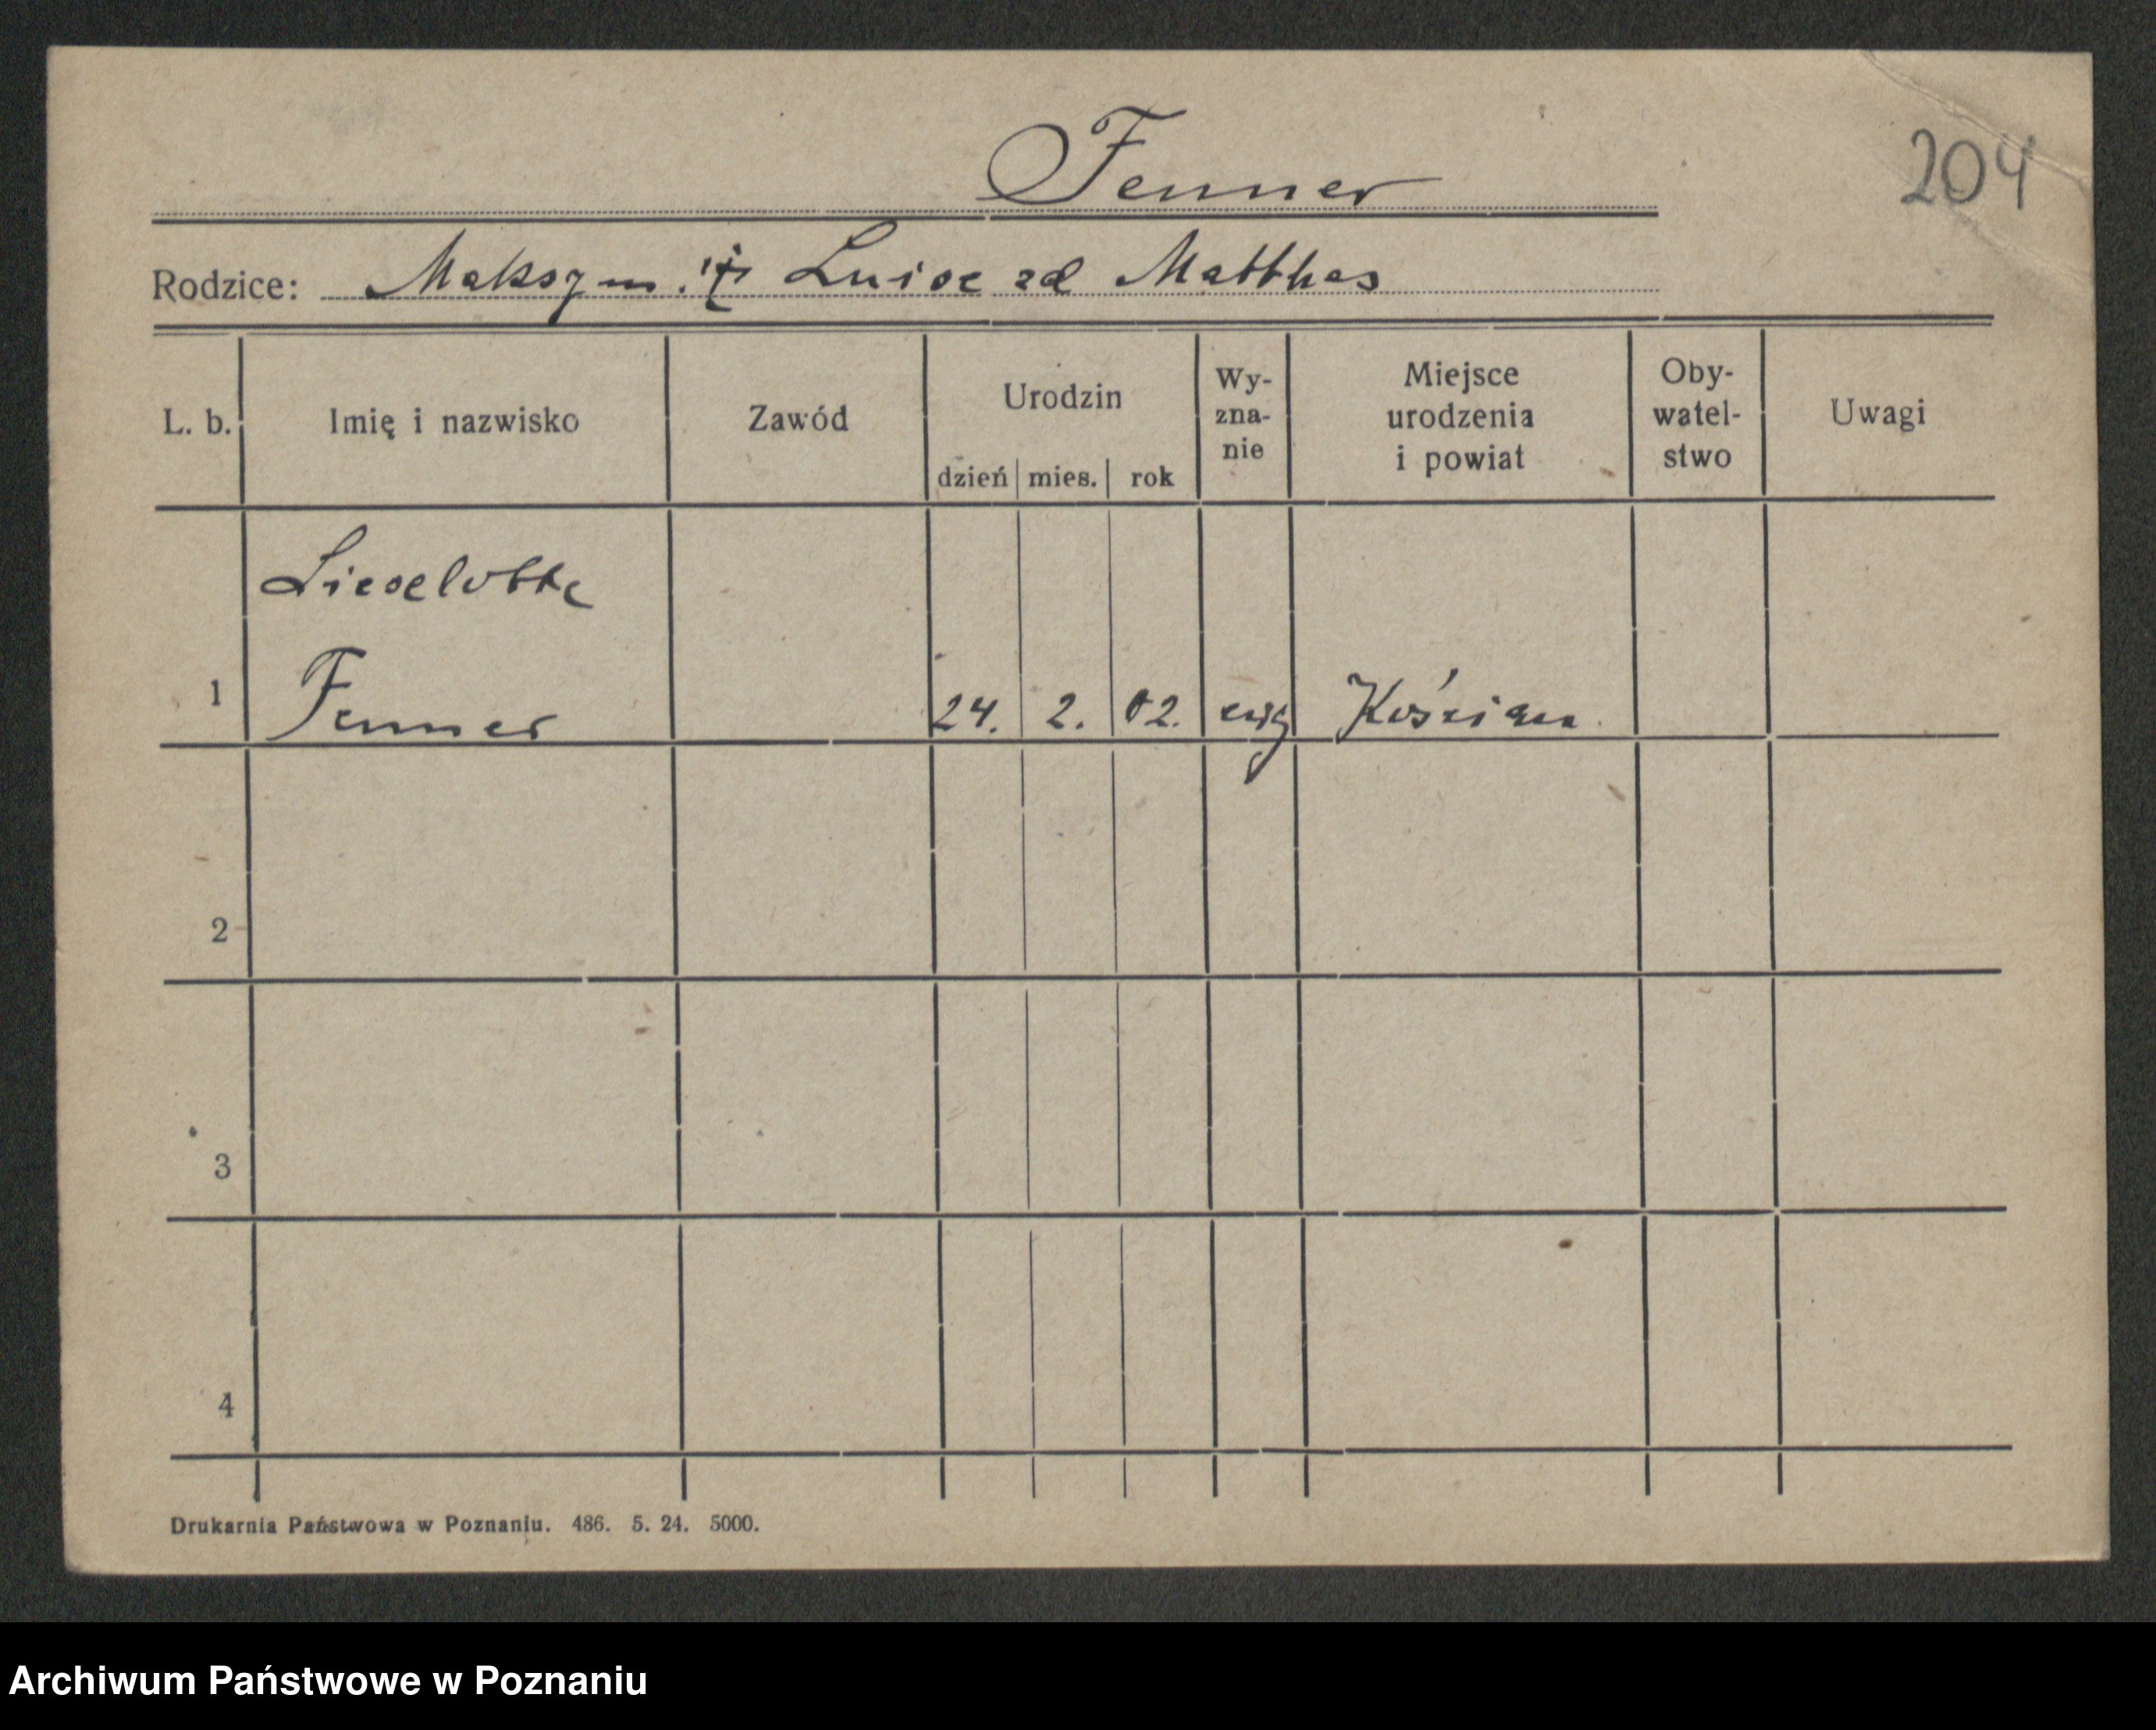 Fenner
204
Rodzice: Maksym. i Luise zd Matthes
L. b. Imię i nazwisko Zawód Urodzin dzień mies. rok Wy-zna-nie Miejsce urodzenia i powiat Oby-watel-stwo Uwagi
Lieselotte
1 Fenner 24. 2. 02. ewg Kościan
2
3
4
Drukarnia Państwowa w Poznaniu. 486. 5. 24. 5000.
Archiwum Państwowe w Poznaniu